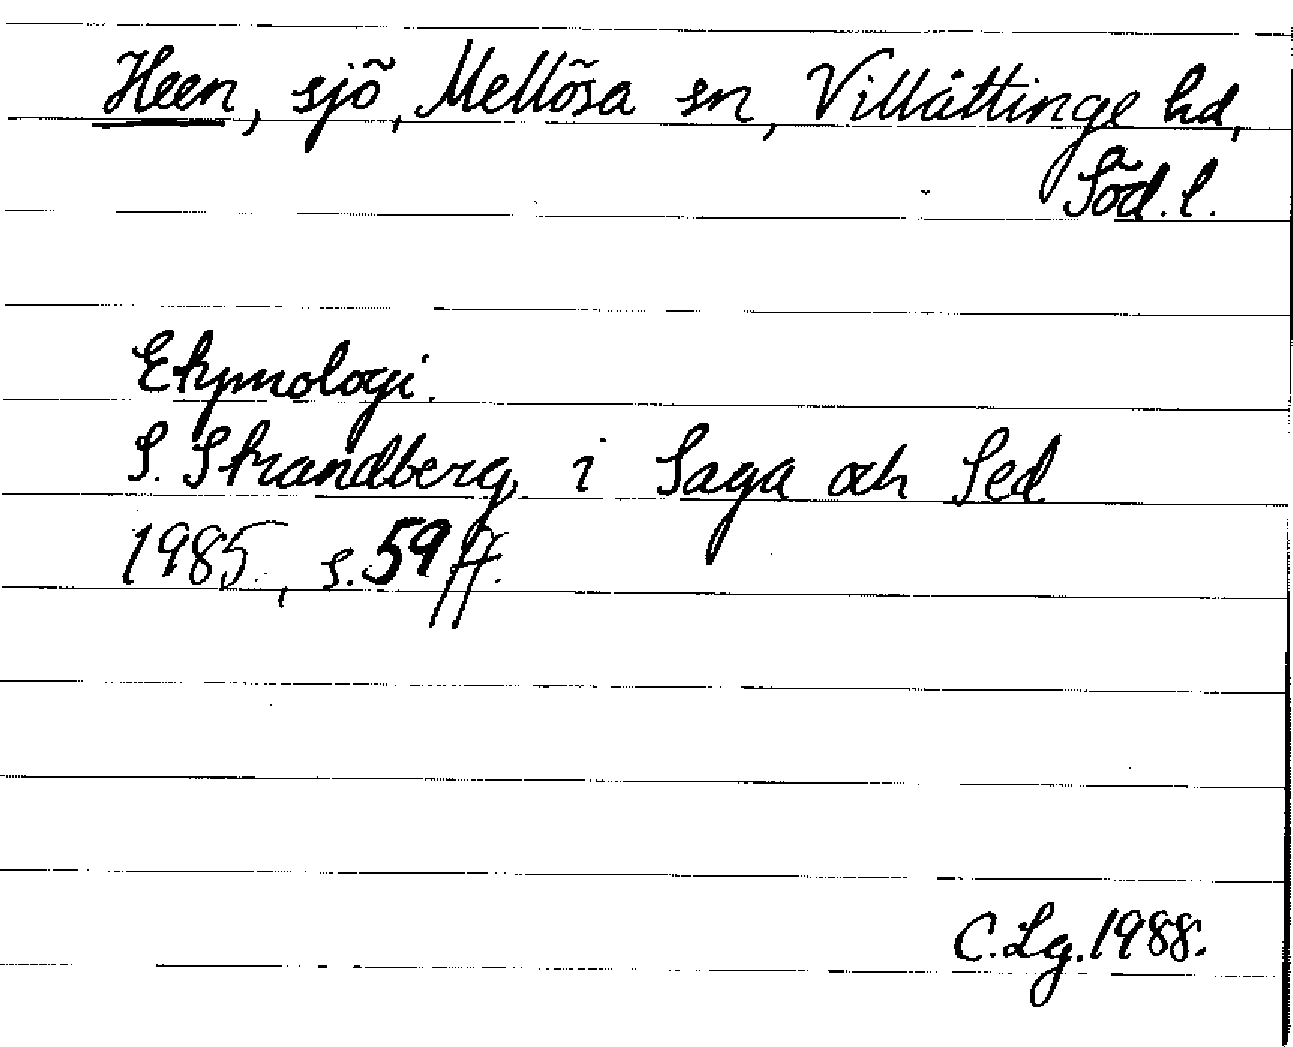 Heen, sjö, Mellösa sn, Villåttinge hd,
Söd. l.
Etymologi.
S. Strandberg i Saga och Sed
1985., s. 59 ff.
C. Lg. 1988.